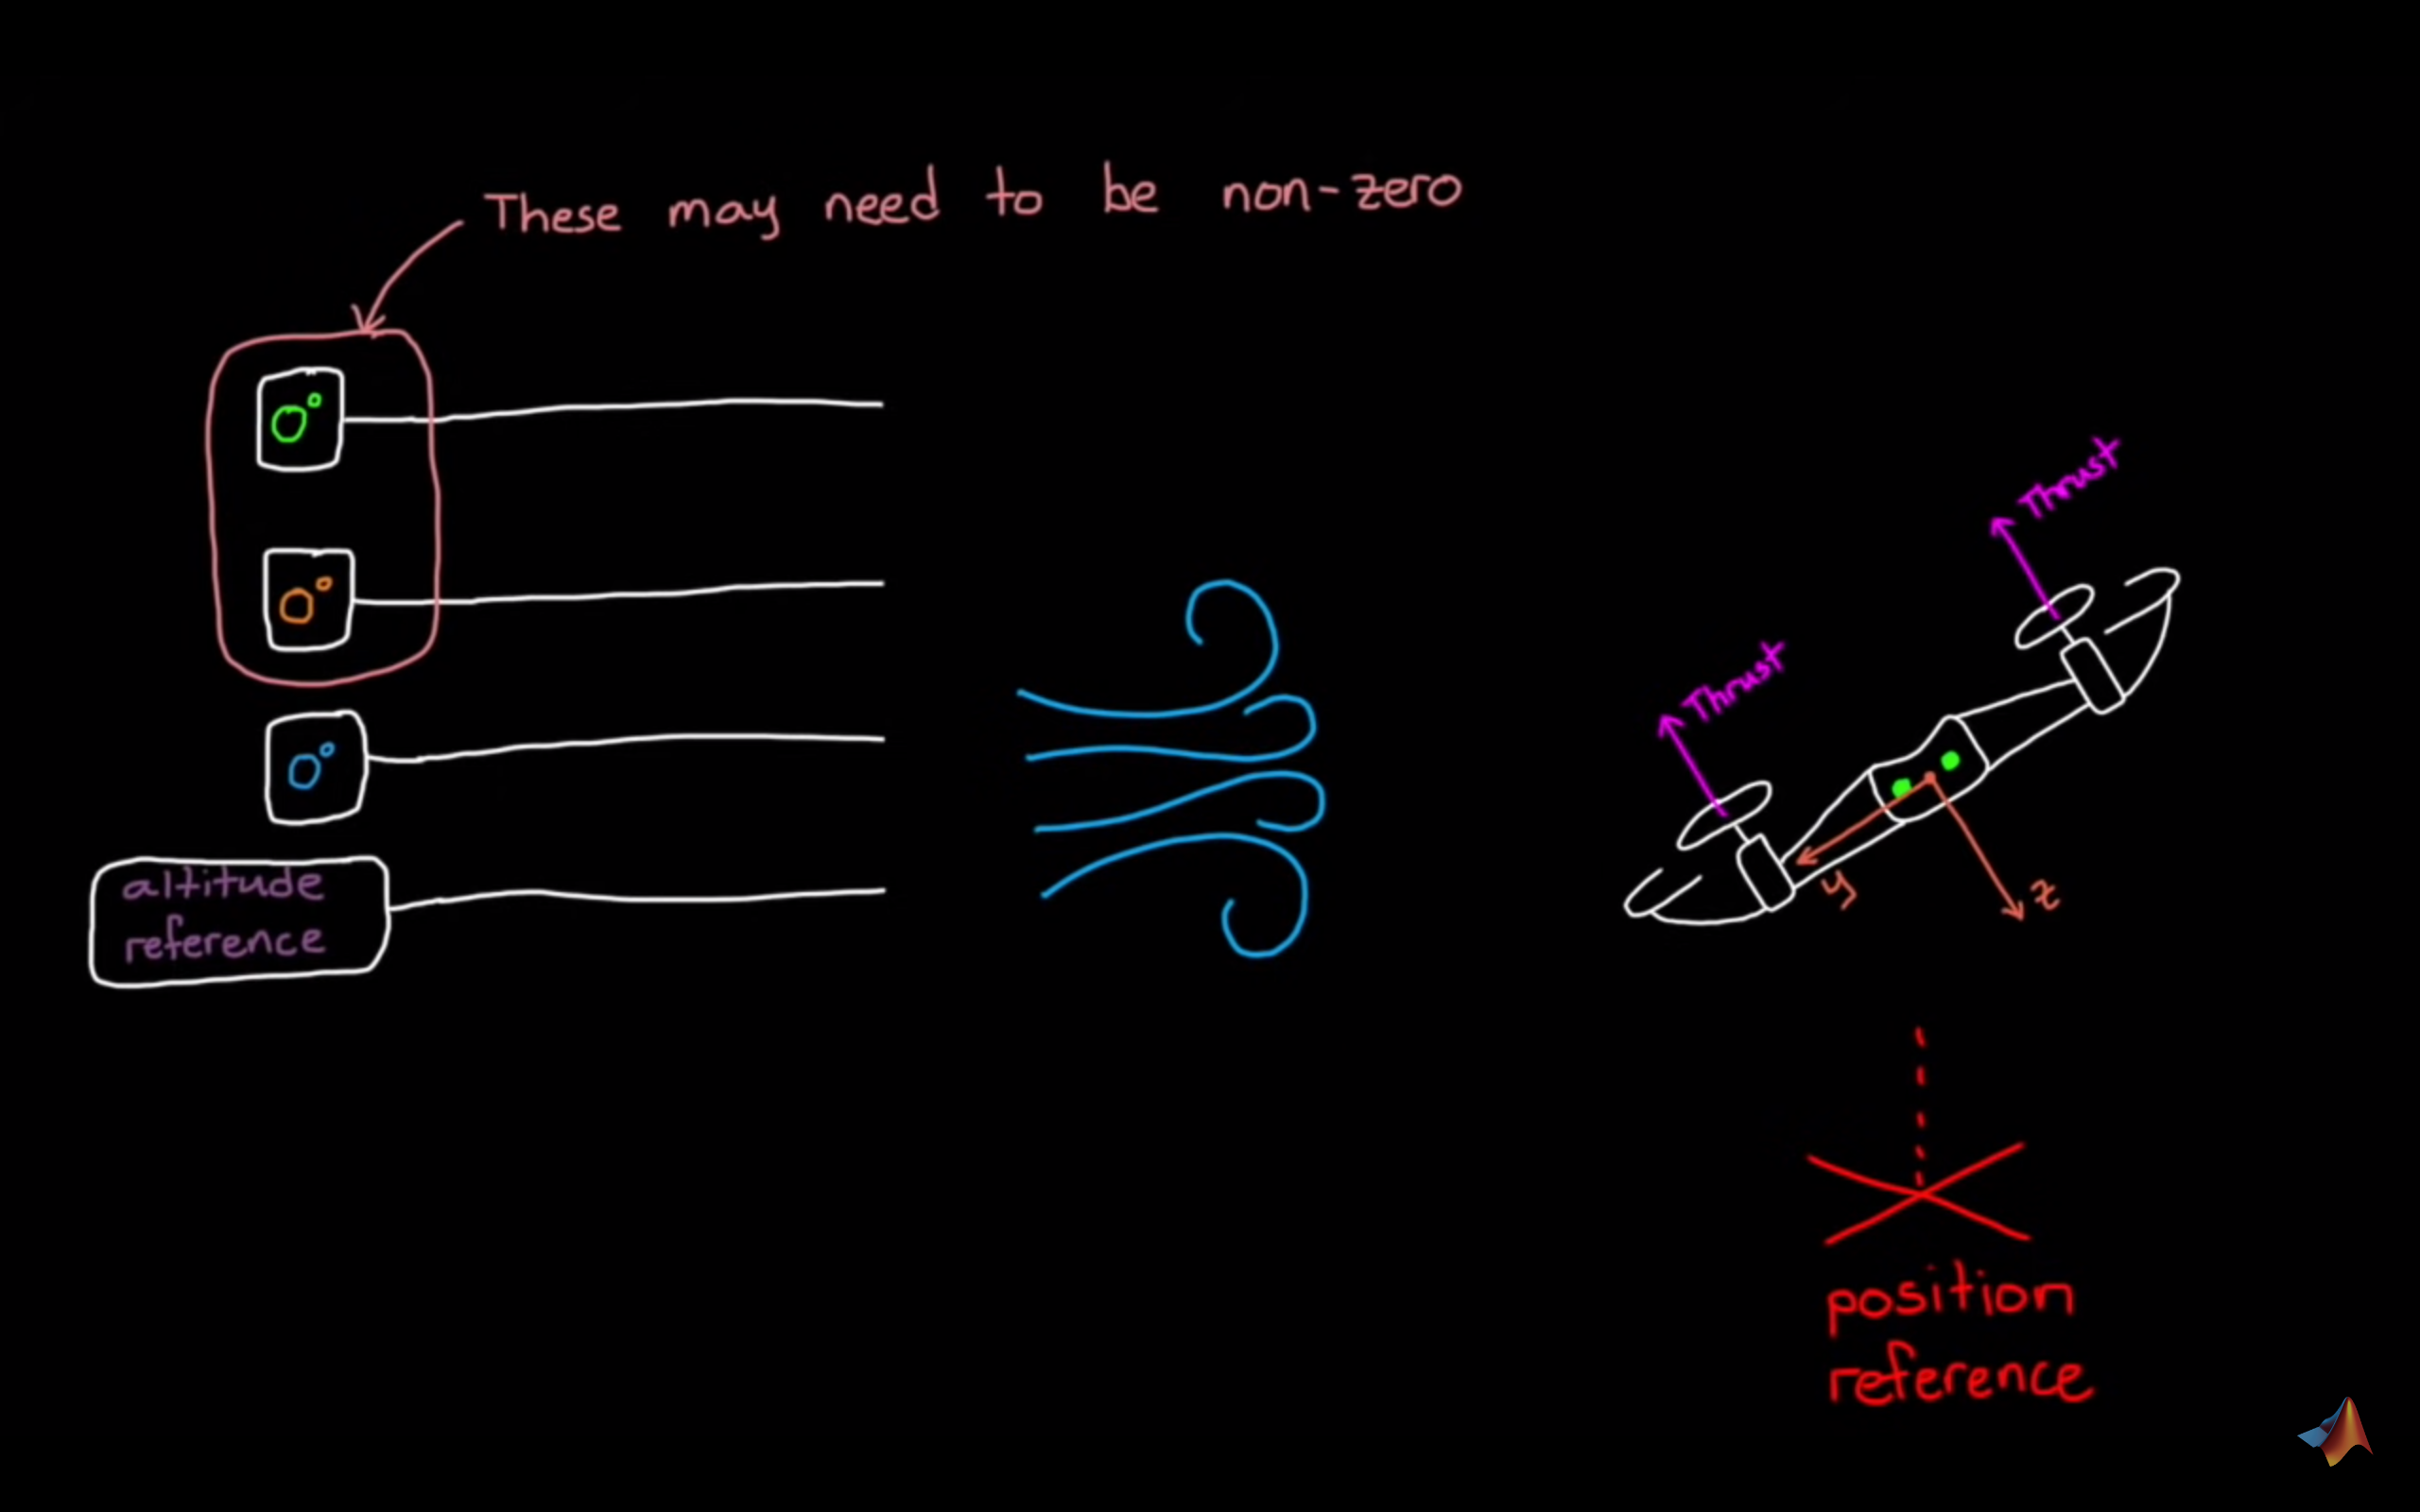 These may need to be non-zero
0°
0°
0°
altitude
reference
Thrust
Thrust
y
z
position
reference